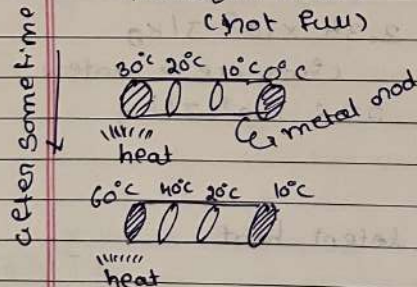 (not full)
after sometime
30°C 20°C 10°C 0°C
metal rod
heat
60°C 40°C 20°C 10°C
heat